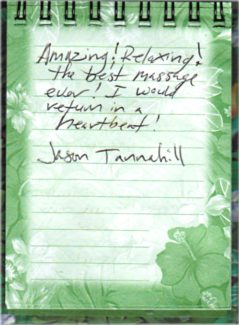 Amazing! Relaxing!
the best massage
ever! I would
return in a
heartbeat!
Jason Tannahill